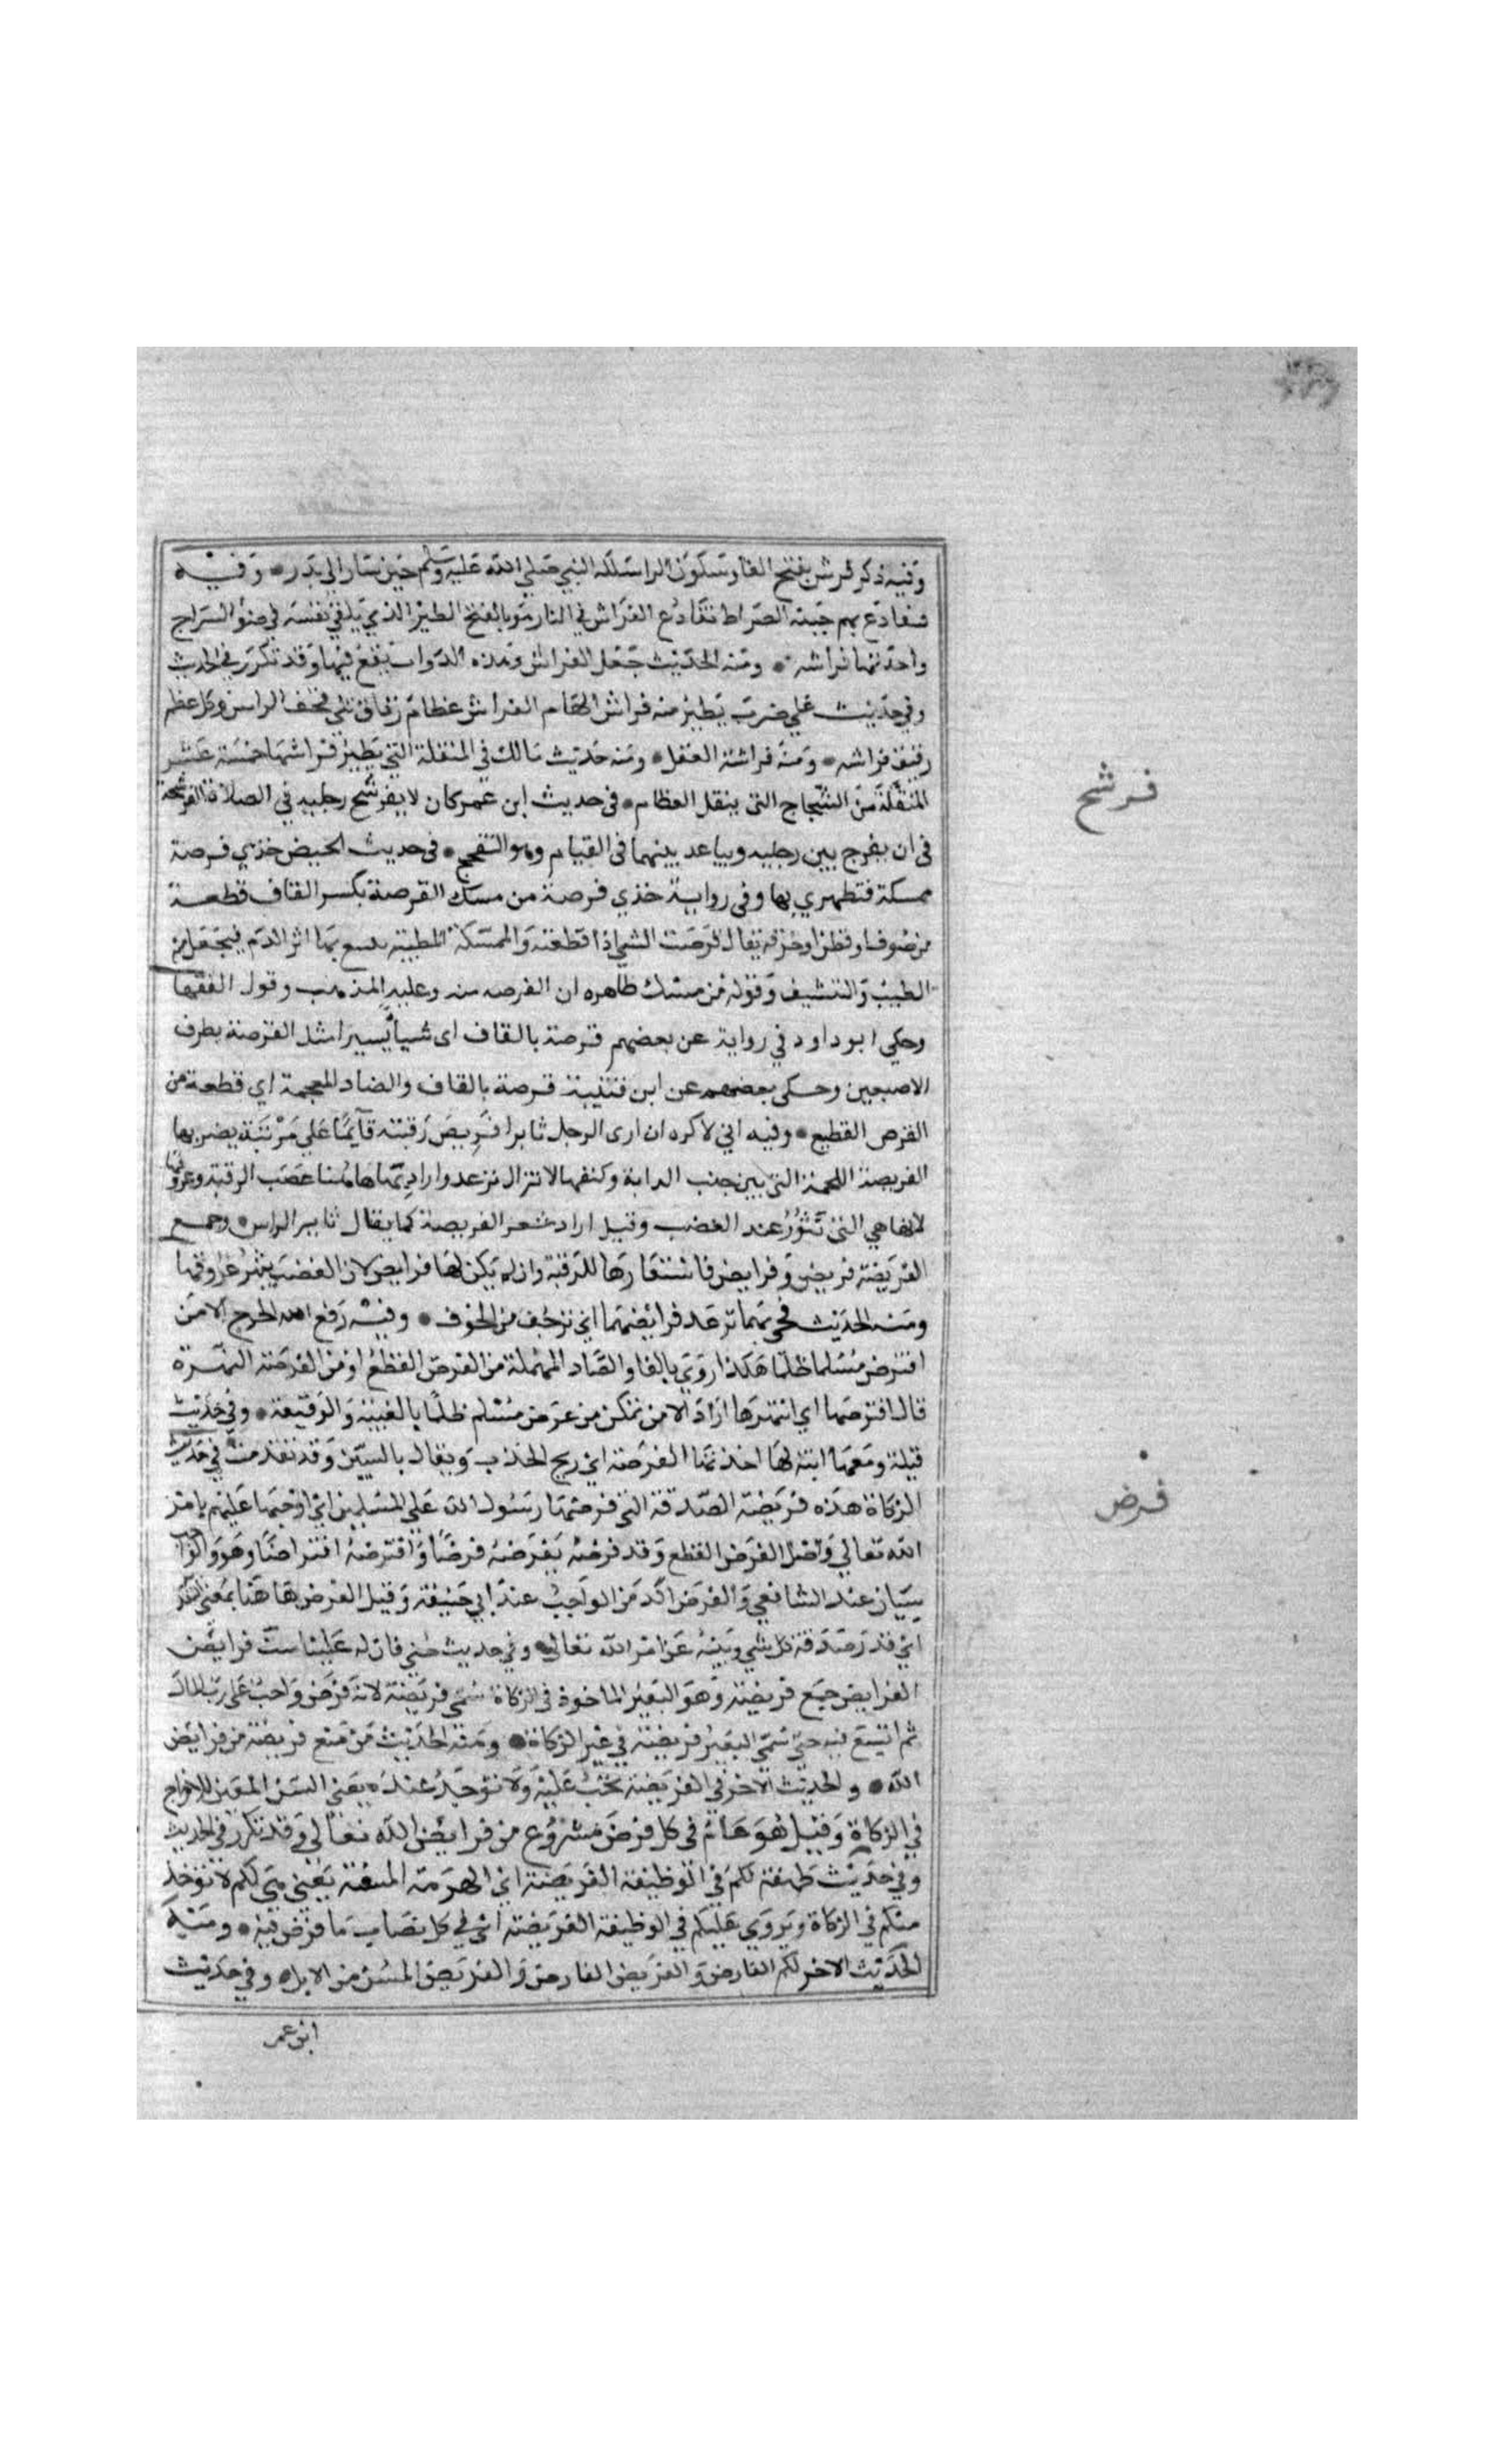 وفيه ذكر فرش بفتح الفا وسكون الرا سلكه النبي صلي الله عليه وسلم حين سار الي بدر • وفيه
فتقادع بهم جنبة الصراط تقادع الفراش في النار هو بالفتح الطير الذي يلقي نفسه في ضوء السراج
واحدتها فراشه • ومنه الحديث جعل الفراش وهذه الدواب يقع فيها وقد تكرر في الحديث
وفي حديث علي ضرب يطير منه فراش الهام الفراش عظام رقاق تلي قحف الراس وكل عظم
رقيق فراشه • ومنه فراشة القفل • ومنه حديث مالك في المنقلة التي يطير فراشها خمسة عشر
المنقلة من الشجاج التي ينقل العظام • في حديث ابن عمر كان لا يفرشح رجليه في الصلاة الفرشحة
في ان يفرج بين رجليه ويباعد بينهما في القيام وهو التفجج • في حديث الحيض خذي فرصة
ممسكة فتطهري بها وفي رواية خذي فرصة من مسك القرصة بكسر القاف قطعة
من صوف او قطن او خرقه يقال فرصت الشي اذا قطعته والممسكة المطيبة بها اثر الدم فيجعل من
الطيب والتنشيف وقوله من مسك ظاهره ان الفرصه منه وعليه المذهب وقول الفقها
وحكي ابو داود في رواية عن بعضهم قرصة بالقاف اى شيأ يسيرا مثل القرصة بطرف
الاصبعين وحكى بعضهم عن ابن قتيبة قرصة بالقاف والضاد المعجمة اي قطعة من
القرص القطيع • وفيه اني لاكره ان ارى الرجل ثايرا فريص رقبته قآيما علي مريته يضربها
الفريصة اللحمة التي بين جنب الدابة وكتفها لا تزال ترعد واراد بها هاهنا عصب الرقبة وعروقها
لانها هي التي تثور عند الغضب وقيل اراد شعر الفريصة كما يقال ثاير الراس • وجمع
الفريصة فريص وفرايص فاستعارها للرقبة وان لم يكن لها فرايص لان الغضب يثير عروقها
ومنه الحديث فجي بهما ترعد فرائصهما اي ترجف من الخوف • وفيه رفع الله الحرج الا من
افترص مسلما ظلما هكذا روي بالفا والصاد المهملة من الفرص القطع او من الفرصة النهزة
قال افترصها اي انتهزها اراد الا من تمكن من عرض مسلم ظلما بالغيبة والوقيعة • وفي حديث
قيلة ومعها ابنة لها اخذتها الفرصة اي ريح الحذب ويقال بالسين وقد تقدمت في حديث
الزكاة هذه فريضة الصدقة التي فرضها رسول الله علي المسلمين اي اوجبها عليهم بامر
الله تعالي واصل الفرض القطع وقد فرضه يفرضه فرضا وافترضه افتراضا وهو والواجب
سيان عند الشافعي والفرض اكد من الواجب عند ابي حنيفة وقيل الفرض هاهنا بمعني التقدير
اي قدر صدقة كل شي وبينه عن امر الله تعالي • وفي حديث حنين فان له علينا ست فرايض
الفرايض جمع فريضة وهو البعير الماخوذ في الزكاة سمي فريضة لانه فرض واجب على رب المال
ثم اتسع فيه حتي سمي البعير فريضة في غير الزكاة • ومنه الحديث من منع فريضة من فرايض
الله • والحديث الاخر في الفريضة تجب عليه ولا توجد عنده يعني السن المعين للاخراج
في الزكاة وقيل هو عام في كل فرض مشروع من فرايض الله تعالي وقد تكرر في الحديث
وفي حديث طهفة لكم في الوظيفة الفريضة اي الهرمة المسنة يعني هي لكم لا توخذ
منكم في الزكاة ويروي عليكم في الوظيفة الفريضة اي في كل نصاب ما فرض فيه • ومنه
الحديث الاخر لكم الفارض والفريض الفارض والفريض المسن من الابل • وفي حديث
ابن عمر
فرشح
فرض